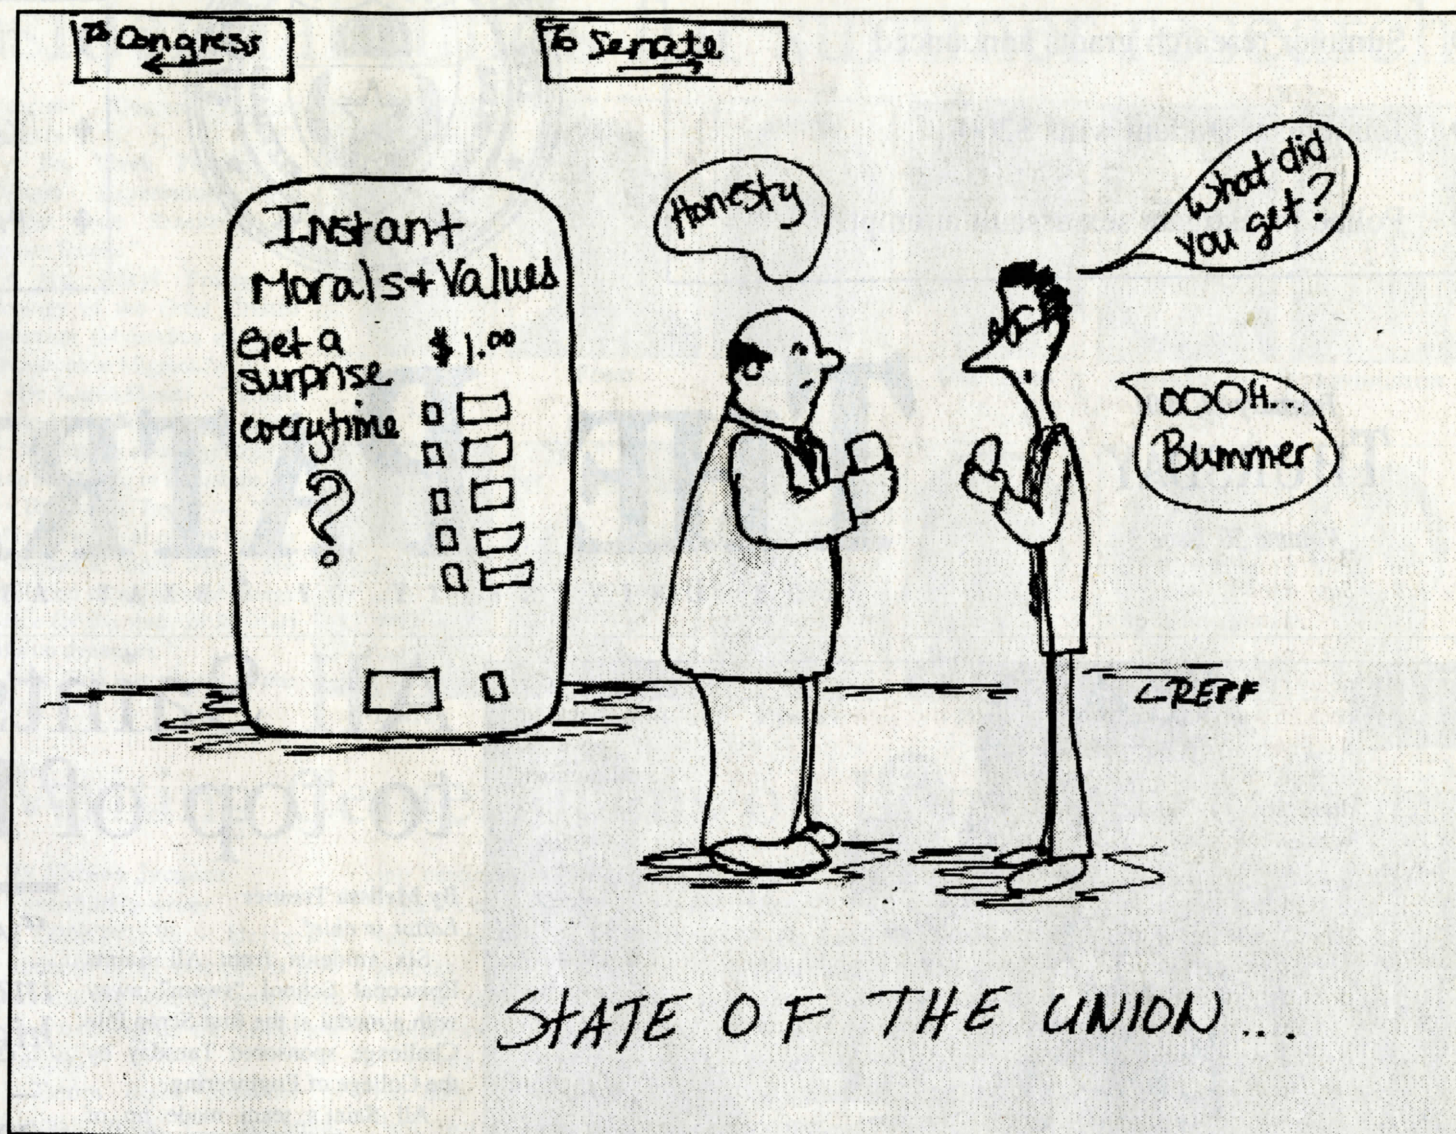 To Congress
To Senate
Instant
Morals + Values
Get a
surprise
everytime
$1.00
?
Honesty
What did
you get?
OOOH...
Bummer
L REPF
STATE OF THE UNION...